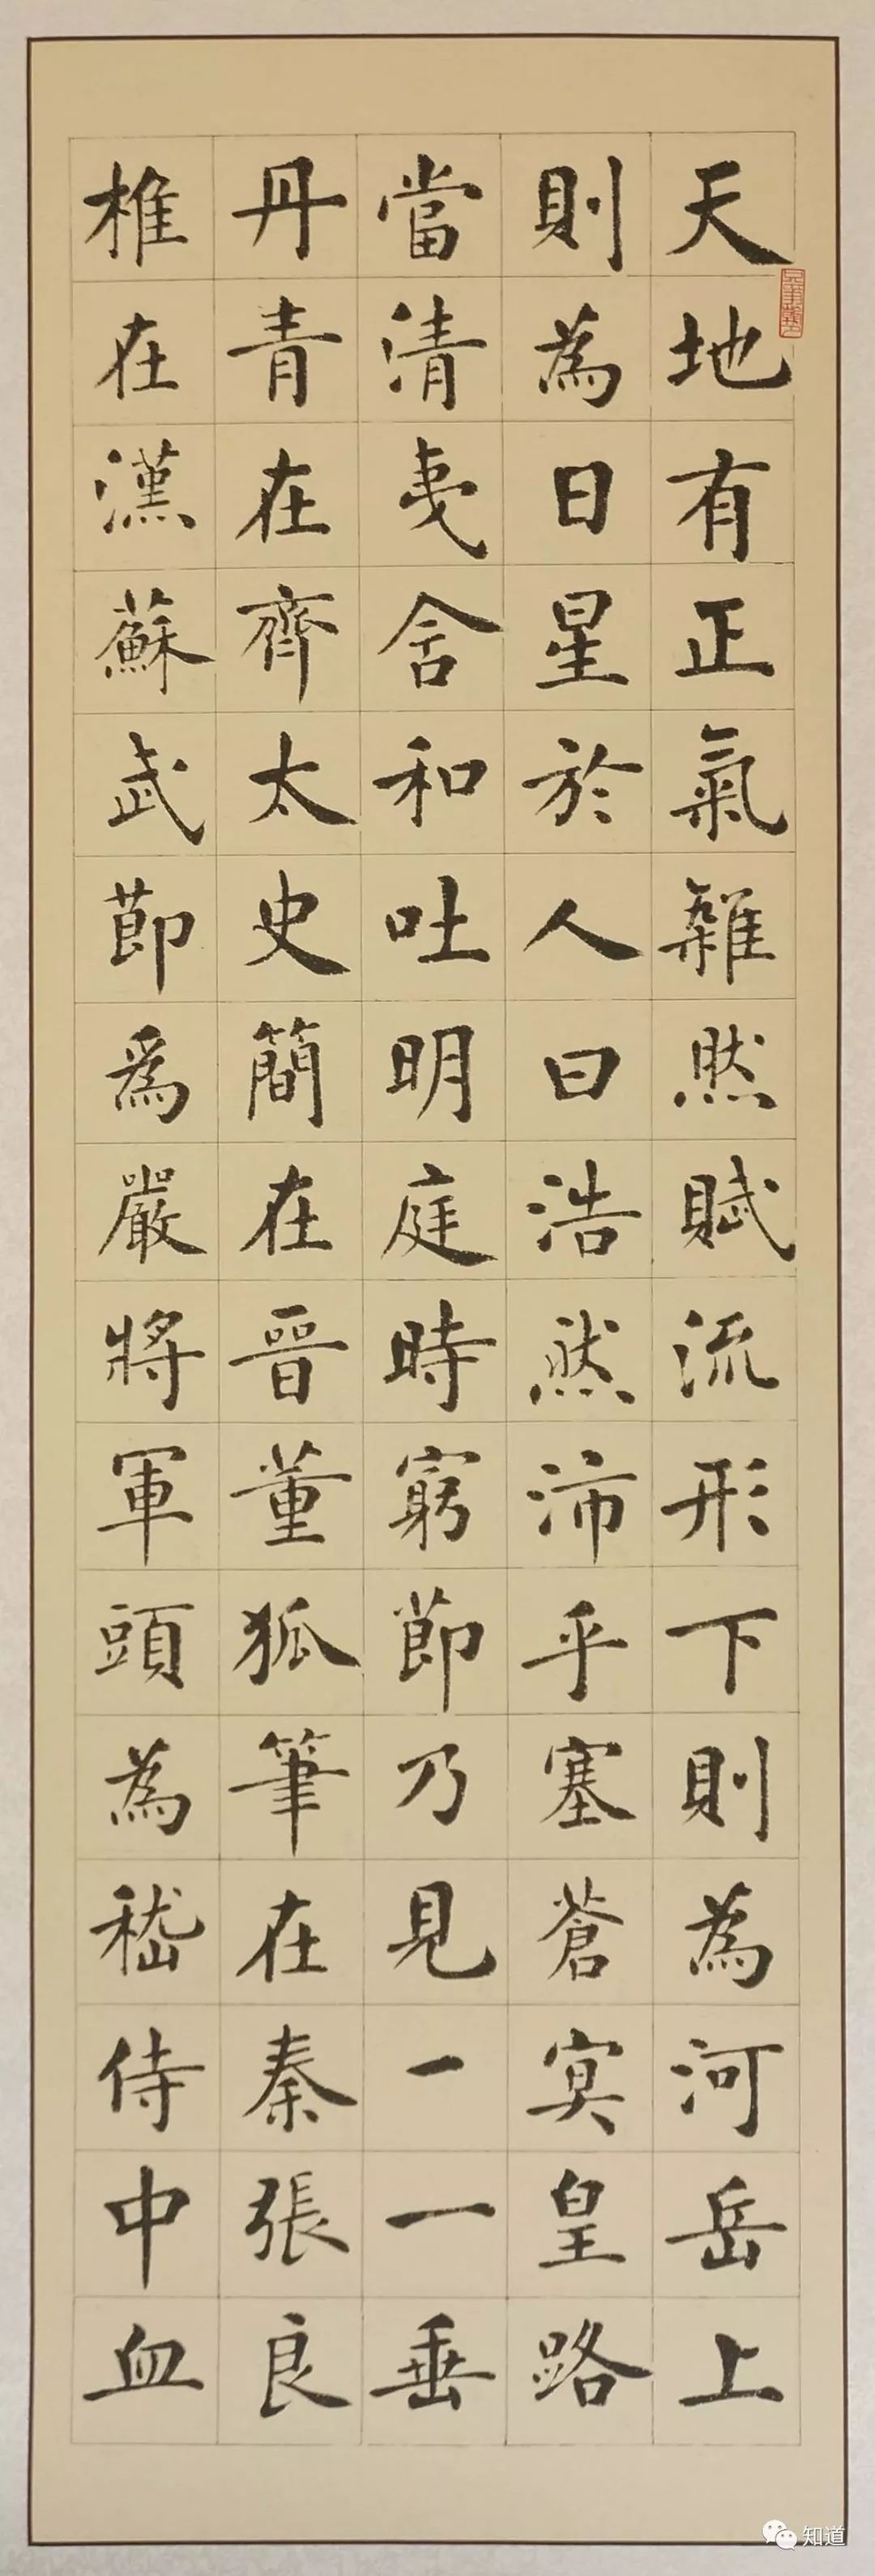 天地有正氣雜然賦流形下則為河岳上
則為日星於人曰浩然沛乎塞蒼冥皇路
當清夷含和吐明庭時窮節乃見一一垂
丹青在齊太史簡在晉董狐筆在秦張良
椎在漢蘇武節為嚴將軍頭為嵇侍中血
知道